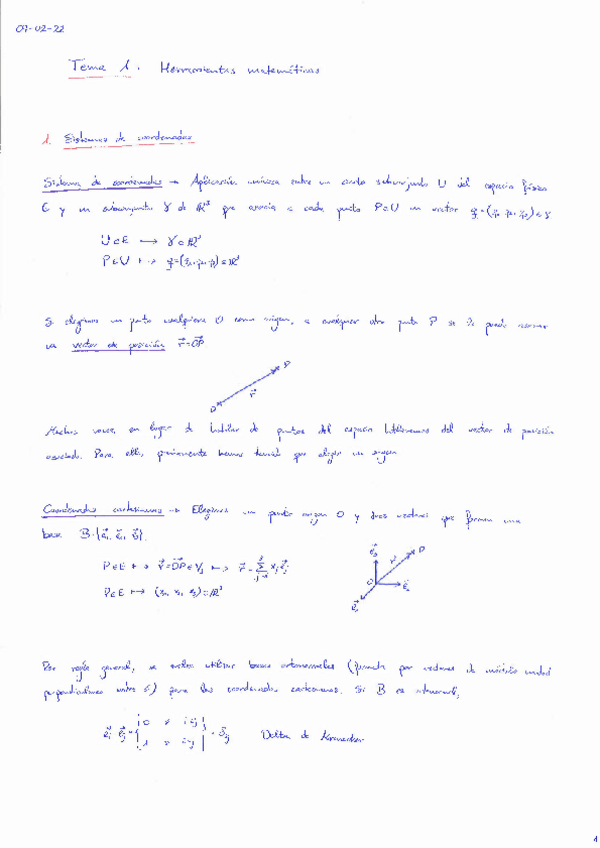 07-02-22
Tema 1. Herramientas matemáticas
1. Sistemas de coordenadas
Sistema de coordenadas → Aplicación unívoca entre un cierto subconjunto U del espacio físico
E y un subconjunto γ de ℝ³ que asocia a cada punto P∈U un vector q=(q₁, q₂, q₃)∈γ
U⊂E ⟶ γ⊂ℝ³
P∈U ↦ q=(q₁,q₂,q₃)∈ℝ³
Si elegimos un punto cualquiera O como origen, a cualquier otro punto P se le puede asociar
un vector de posición r⃗=OP⃗
P
r⃗
O
Muchas veces, en lugar de hablar de puntos del espacio hablaremos del vector de posición
asociado. Para ello, previamente hemos tenido que elegir un origen
Coordenadas cartesianas → Elegimos un punto origen O y tres vectores que forman una
base B={e⃗₁, e⃗₂, e⃗₃}.
P∈E ↦ r⃗=OP⃗∈V₃ ↦ r⃗=∑ xⱼe⃗ⱼ
P∈E ↦ (x₁, x₂, x₃)∈ℝ³
P
r⃗
O
Por regla general, se suelen utilizar bases ortonormales (formada por vectores de módulo unidad
perpendiculares entre sí) para las coordenadas cartesianas. Si B es ortonormal,
e⃗ᵢ e⃗ⱼ = { 0 i≠j
1 i=j } = δᵢⱼ Delta de Kronecker
4